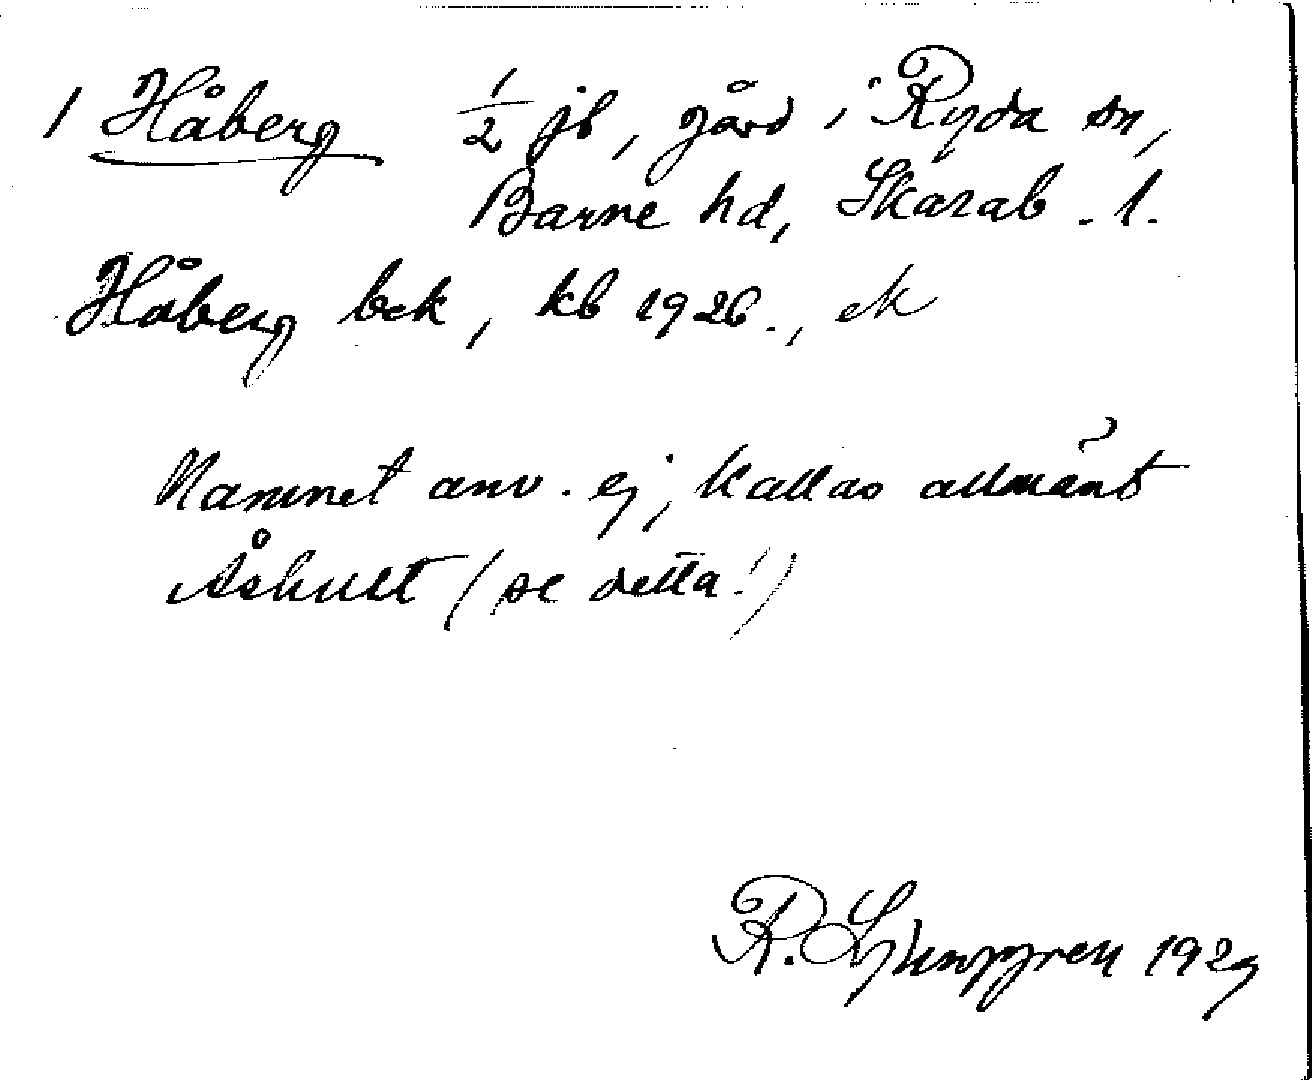 1 Håberg ½ jb, gård i Ryda sn,
Barne hd, Skarab. l.
Håberg bek, kb 1926., ek
Namnet anv. ej, kallas allmänt
Åshult (se detta!)
R. Ljunggren 1929